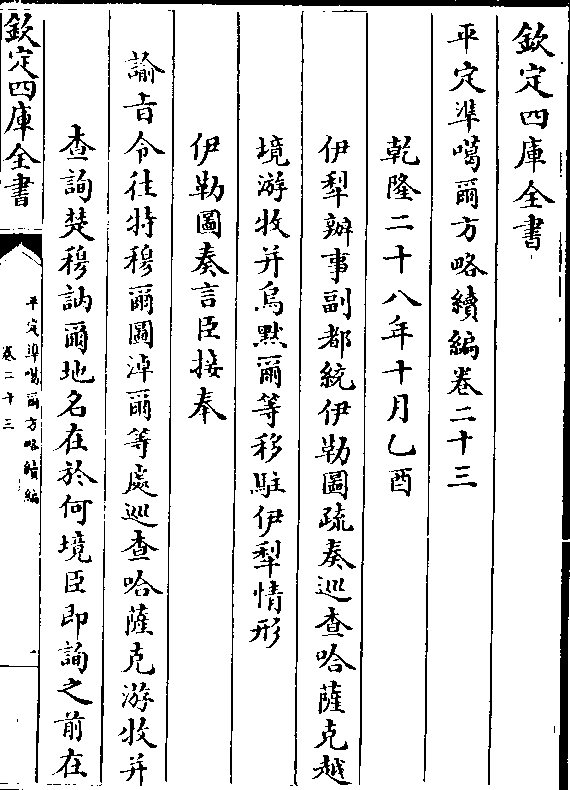 欽定四庫全書
平定準噶爾方略續編卷二十三
乾隆二十八年十月乙酉
伊犁辦事副都統伊勒圖疏奏巡查哈薩克越
境游牧并烏默爾等移駐伊犁情形
伊勒圖奏言臣接奉
諭旨令往特穆爾圖淖爾等處巡查哈薩克游牧并
查詢楚穆訥爾地名在於何境臣即詢之前在
欽定四庫全書
平定準噶爾方略續編
卷二十三
一